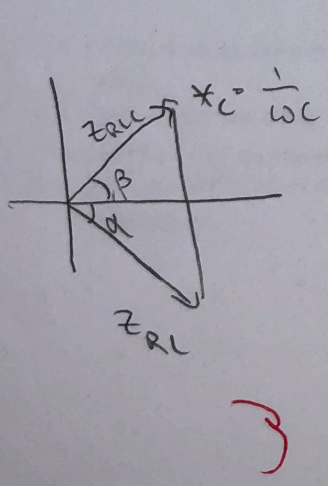 Z_RLC
X_C = 1/ωC
β
α
Z_RL
3